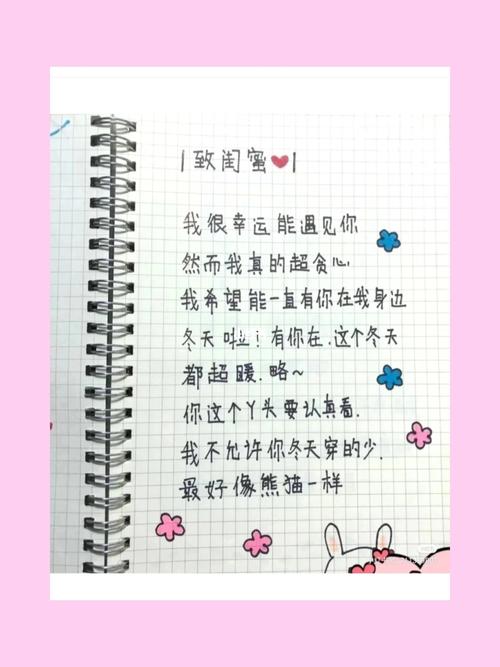 |致闺蜜❤|
我很幸运能遇见你
然而我真的超贪心
我希望能一直有你在我身边
冬天啦!有你在.这个冬天
都超暖.略~
你这个丫头要认真看.
我不允许你冬天穿的少.
最好像熊猫一样